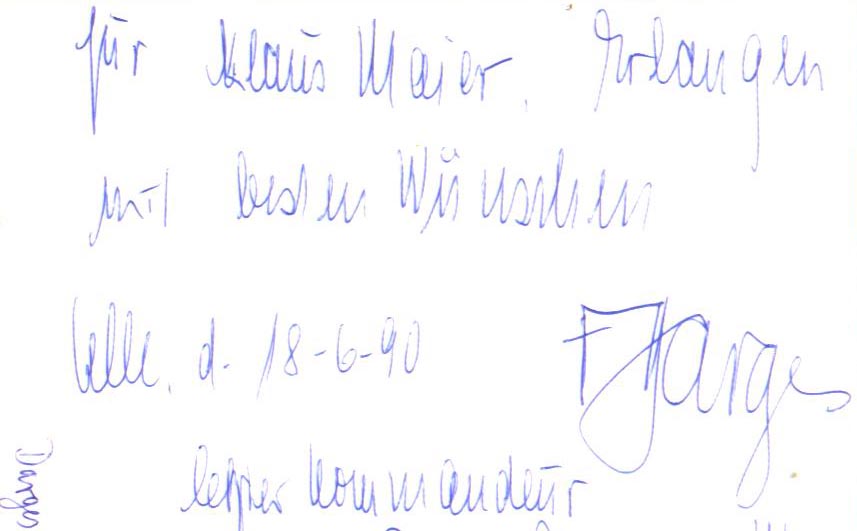 für Klaus Maier, Erlangen
mit besten Wünschen
Celle, d. 18-6-90
F Darges
letzter Kommandeur
Darges